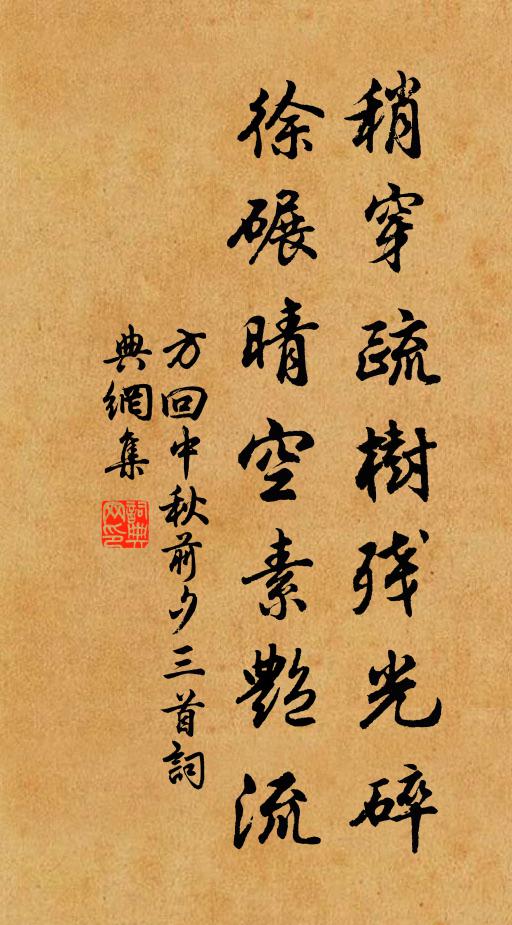 稍穿疏樹残光碎
徐碾晴空素艷流
方回中秋前夕三首詞
典網集
詞典網印